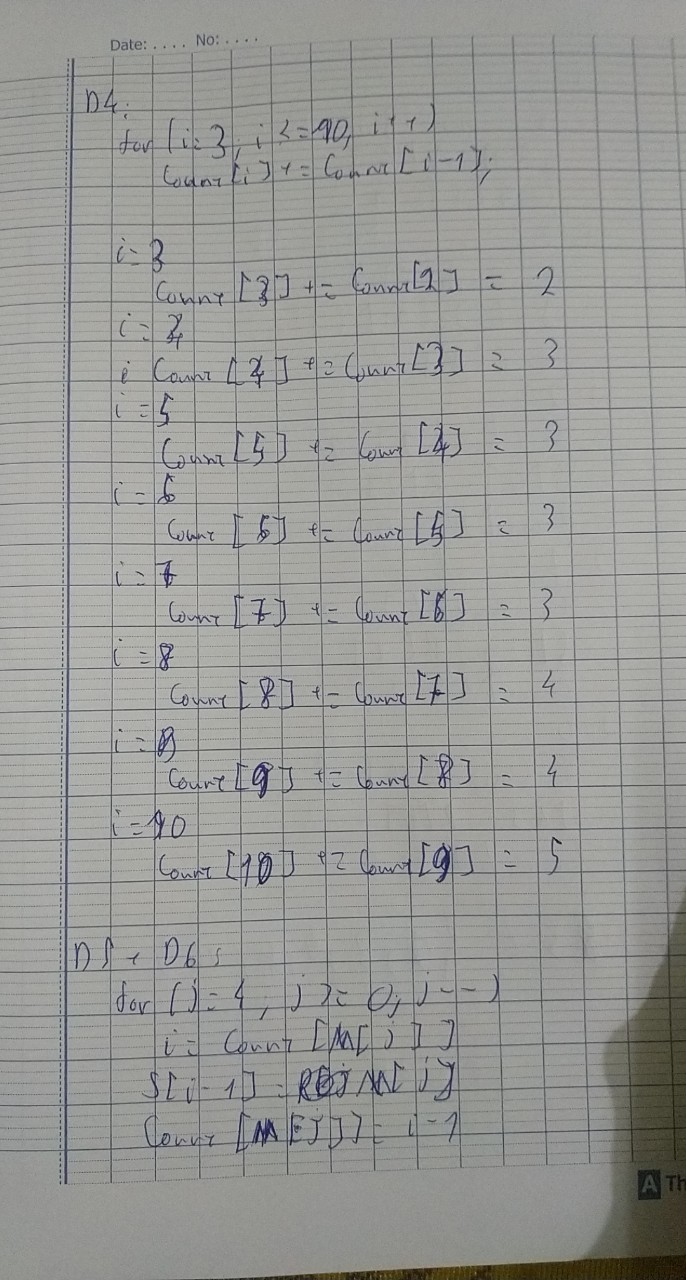 Date: .... No: ....
D4:
for (i=3, i <= 10, i++)
Count[i] += Count[i-1];
i=3
Count[3] += Count[2] = 2
i=4
Count[4] += Count[3] = 3
i=5
Count[5] += Count[4] = 3
i=6
Count[6] += Count[5] = 3
i=7
Count[7] += Count[6] = 3
i=8
Count[8] += Count[7] = 4
i=9
Count[9] += Count[8] = 4
i=10
Count[10] += Count[9] = 5
D5 + D6:
for (j=4, j>=0, j--)
i= Count [M[j]]
S[i-1] = M[j]
Count [M[j]] = i-1
A Th